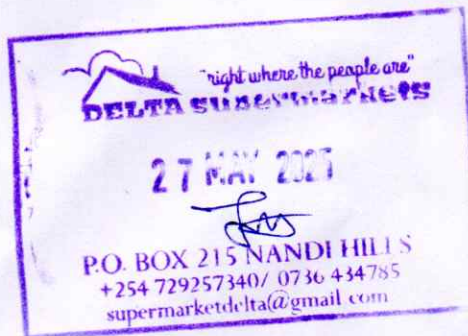 "right where the people are"
DELTA SUPERMARKETS
27 MAY 2025
P.O. BOX 215 NANDI HILLS
+254 729257340/ 0736 434785
supermarketdelta@gmail com